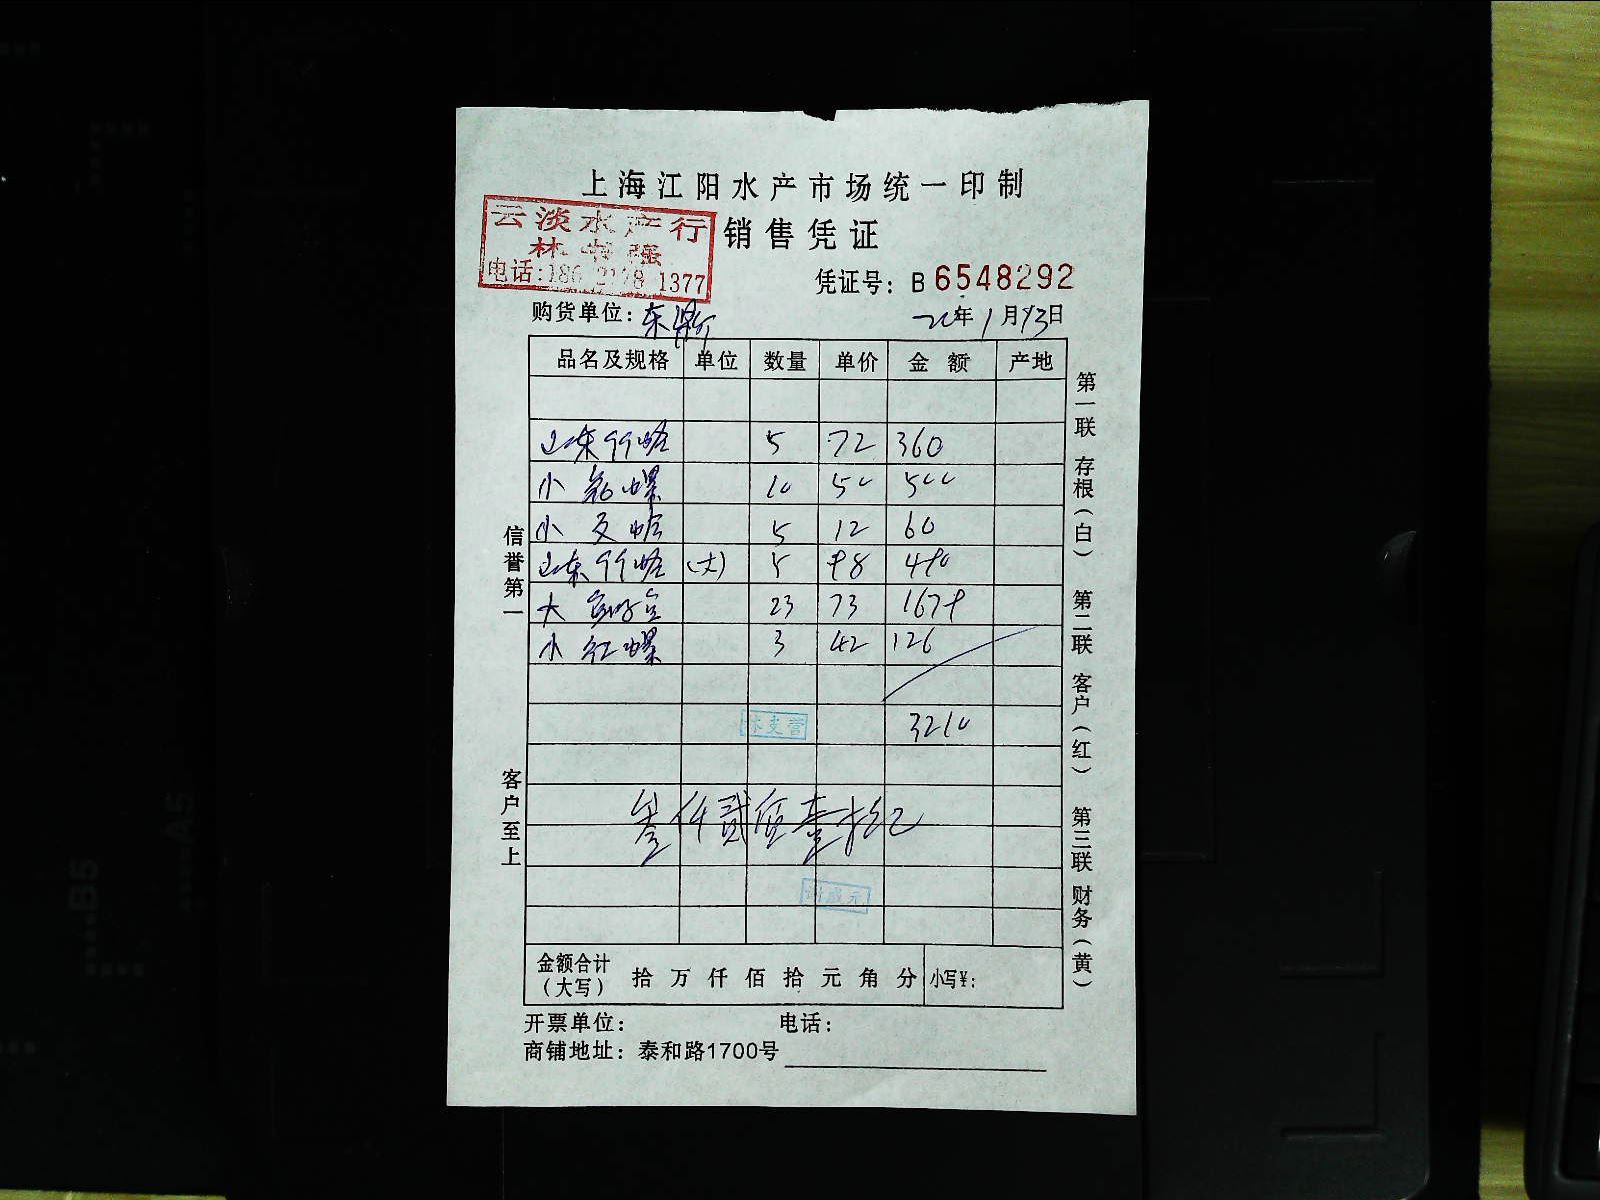 上海江阳水产市场统一印制
销售凭证
云淡水产行
林书强
电话:186 2178 1377
凭证号：B 6548292
购货单位：东
年1月13日
品名及规格 单位 数量 单价 金额 产地
山东 5 72 360
小 螺 10 50 500
小 5 12 60
山东 (大) 5 98 490
大 23 73 1679
小红螺 3 42 126
3210
叁仟贰佰壹拾元
金额合计（大写） 拾 万 仟 佰 拾 元 角 分 小写¥：
开票单位： 电话：
商铺地址：泰和路1700号
信誉第一
客户至上
第一联 存根（白） 第二联 客户（红） 第三联 财务（黄）